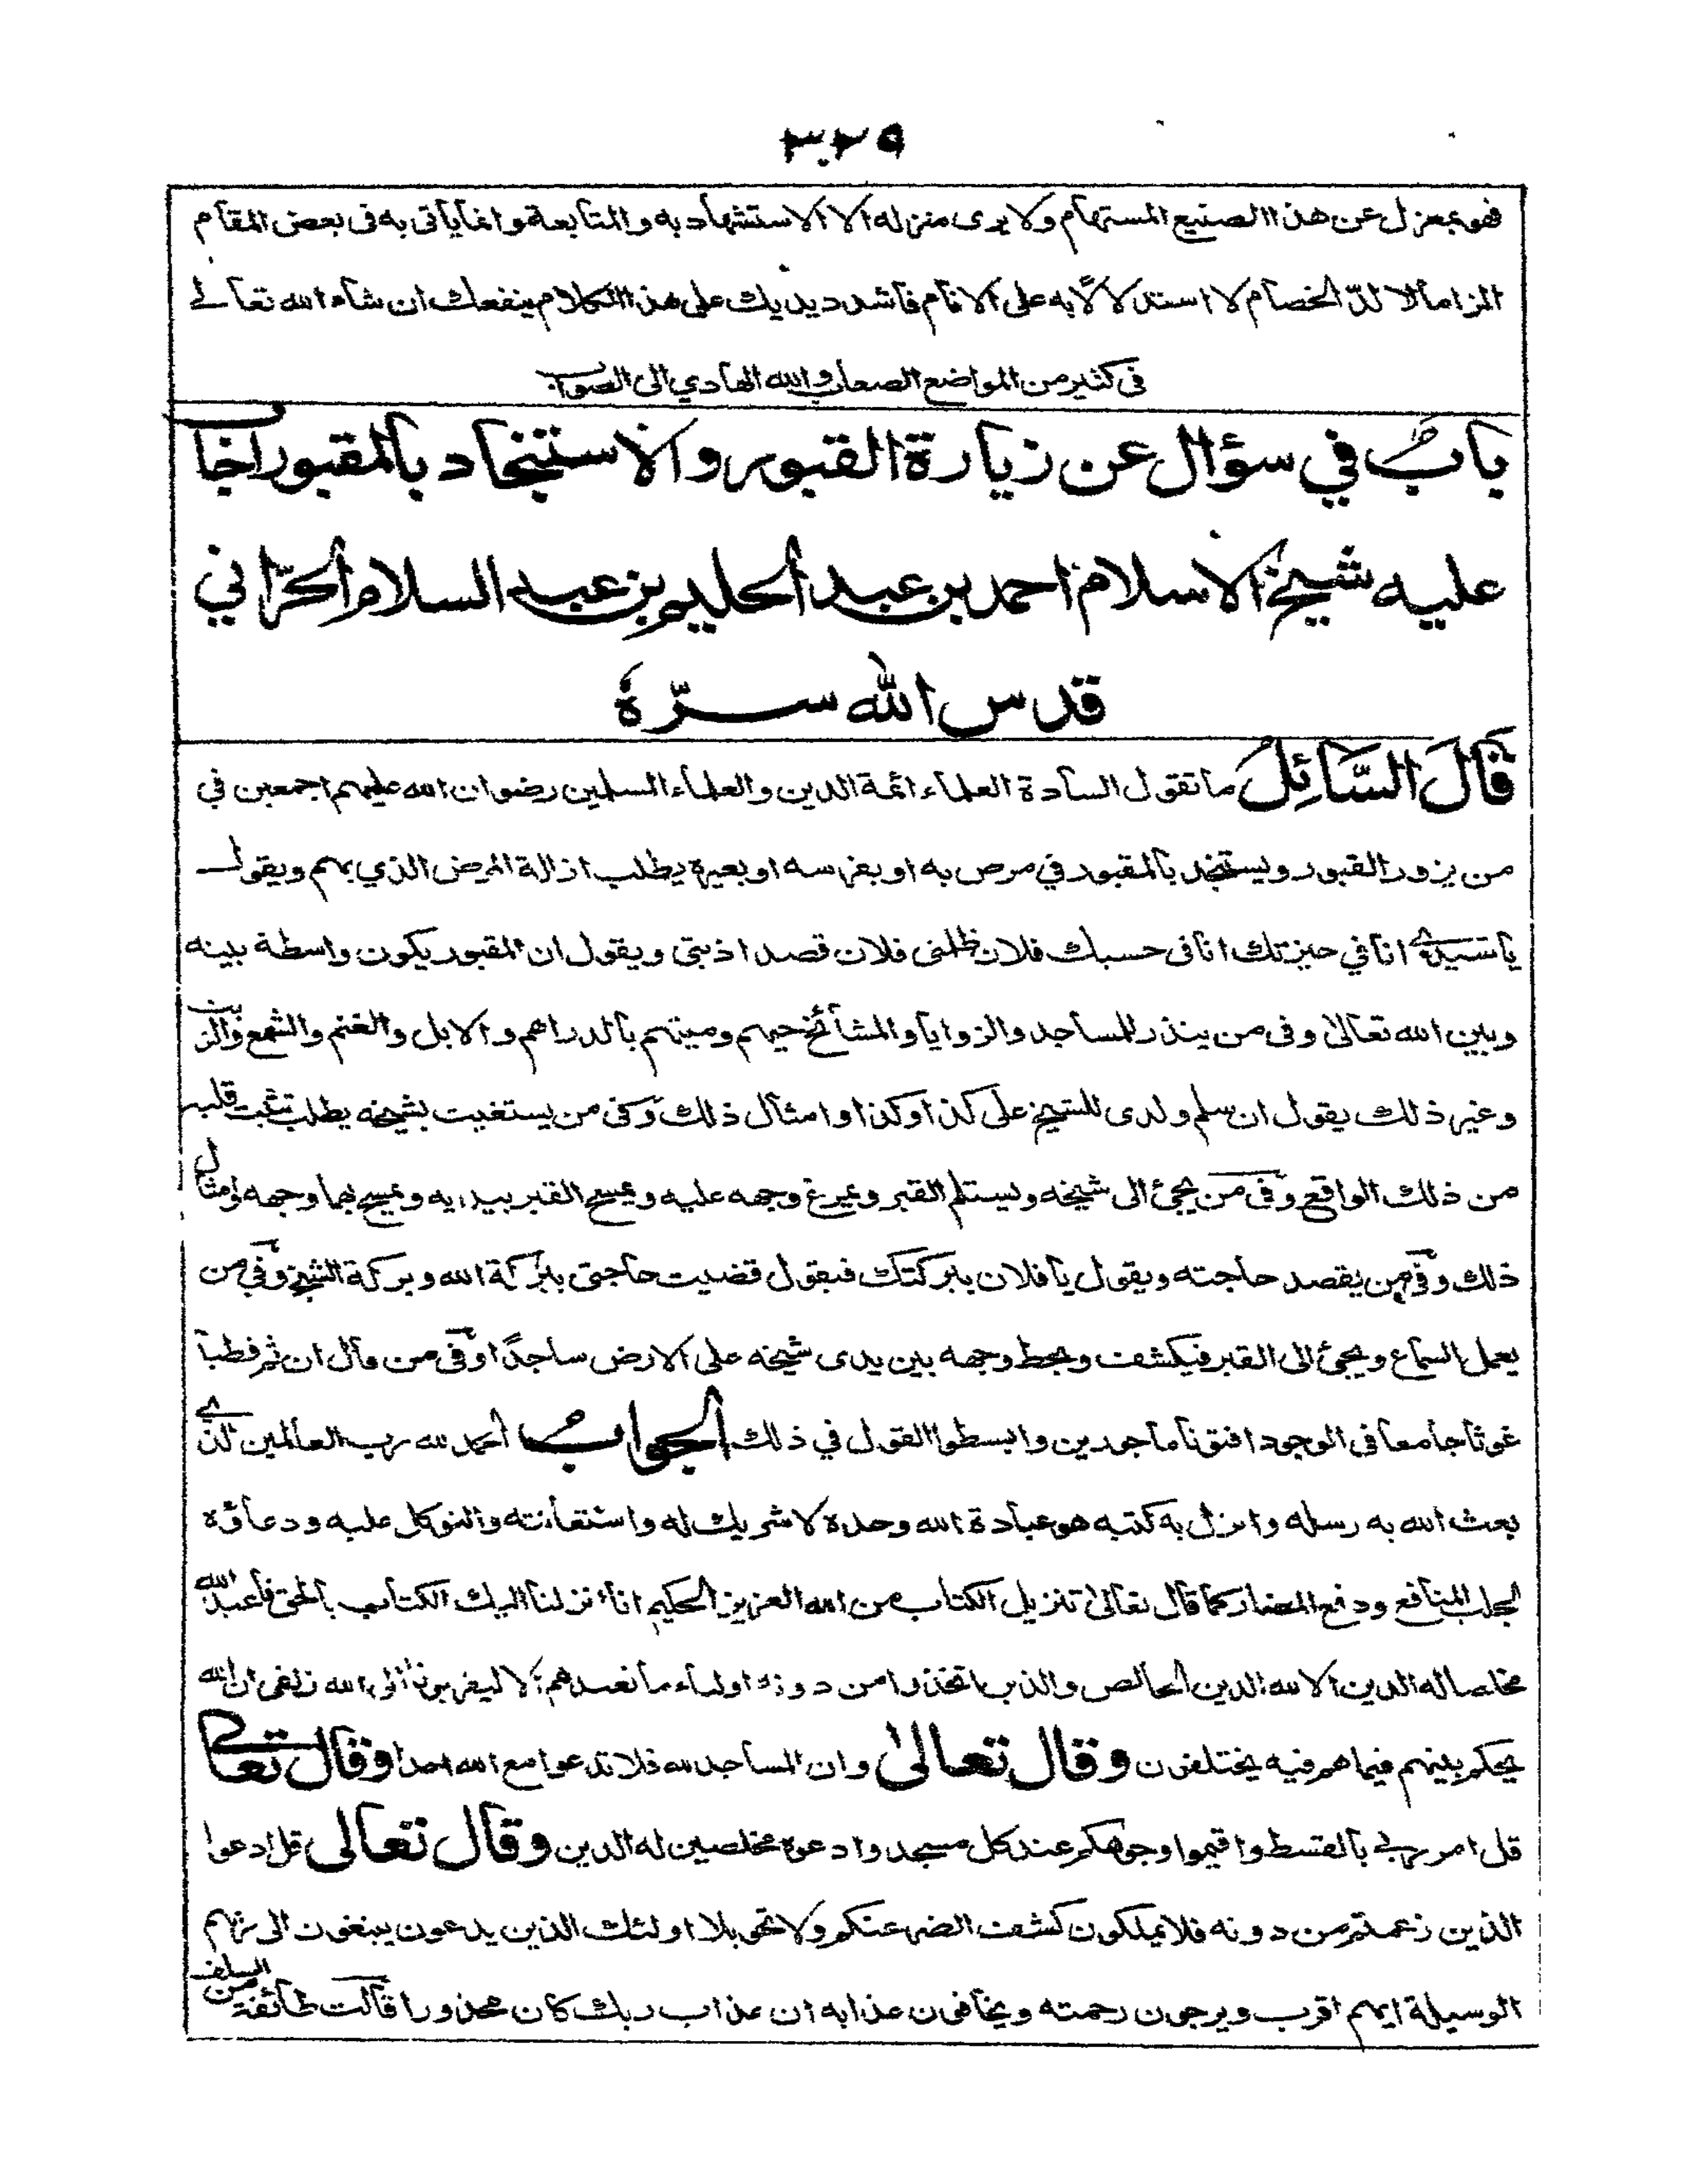 ٣٢٩
فهو بمعزل عن هذا الصنيع المستهام ولا يرى منزله الا الاستشهاد به والمتابعة وانما يأتى به فى بعض المقام
الزاما لالدّ الخصام لا استدلالًا به على الانام فاشدد يديك على هذا الكلام ينفعك ان شاء الله تعالے
فى كثير من المواضع الصعاب والله الهادي الى الصواب
بابٌ في سؤال عن زيارة القبور والاستنجاد بالمقبور اجاب
عليه شيخ الاسلام احمد بن عبد الحليم بن عبد السلام الحرّاني
قدس الله سرّهٗ
قَالَ السَّائِلُ ما تقول السادة العلماء ائمة الدين والعلماء المسلمين رضوان الله عليهم اجمعين في
من يزور القبور ويستنجد بالمقبور في مرض به او بفرسه او بعيره يطلب ازالة المرض الذي بهم ويقول
يا سيدے انا في جيزتك انا فى حسبك فلان ظلمنى فلان قصد اذيتى ويقول ان المقبور يكون واسطة بينه
وبين الله تعالىٰ وفى من ينذر للمساجد والزوايا والمشائخ حيهم وميتهم بالدراهم والابل والغنم والشمع والزيت
وغير ذلك يقول ان سلم ولدى للشيخ على كذا وكذا وامثال ذلك وفى من يستغيث بشيخه يطلب تثبت قلبه
من ذلك الواقع وفى من يجئ الى شيخه ويستلم القبر ويمرغ وجهه عليه ويمسح القبر بيديه ويمسح بها وجهه وامثال
ذلك وفى من يقصد حاجته ويقول يا فلان ببركتك فيقول قضيت حاجتى ببركة الله وبركة الشيخ وفي من
يعمل السماع ويجئ الى القبر فيكشف ويحط وجهه بين يدى شيخه على الارض ساجدًا وفى من قال ان ثم قطبا
غوثا جامعا فى الوجود افتونا ماجورين وابسطوا القول في ذلك الجوابُ الحمد لله رب العالمين الذے
بعث الله به رسله وانزل به كتبه هو عبادة الله وحده لا شريك له واستعانته والتوكل عليه ودعاؤه
لجلب المنافع ودفع المضار كما قال تعالىٰ تنزيل الكتاب من الله العزيز الحكيم انا انزلنا اليك الكتاب بالحق فاعبد الله
مخلصا له الدين الا لله الدين الخالص والذين اتخذوا من دونه اولياء ما نعبدهم الا ليقربونا الى الله زلفى ان الله
يحكم بينهم فيما هم فيه يختلفون وقال تعالىٰ وان المساجد لله فلا تدعوا مع الله احدا وقال تعالے
قل امر ربے بالقسط واقيموا وجوهكم عند كل مسجد وادعوه مخلصين له الدين وقال تعالى قل ادعوا
الذين زعمتم من دونه فلا يملكون كشف الضر عنكم ولا تحويلا اولئك الذين يدعون يبتغون الى ربهم
الوسيلة ايهم اقرب ويرجون رحمته ويخافون عذابه ان عذاب ربك كان محذورا قالت طائفة من السلف